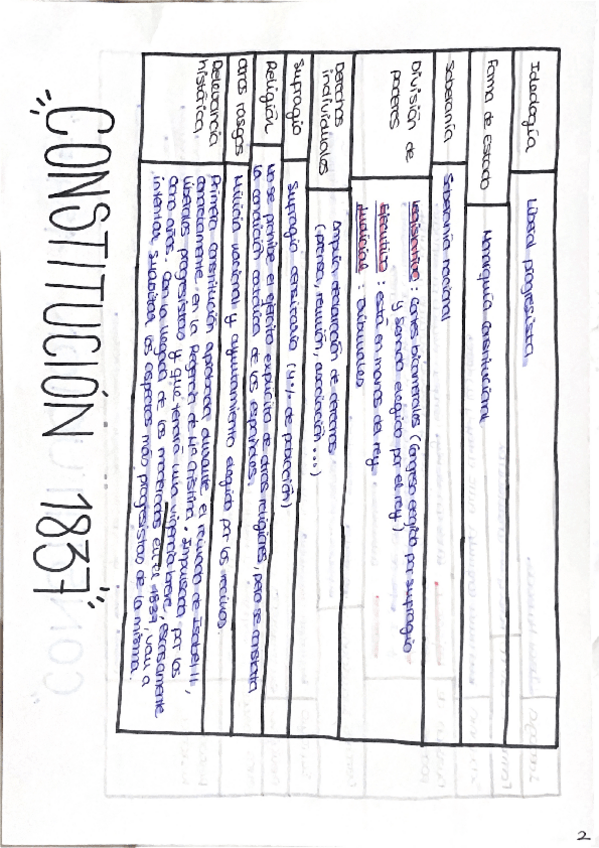 "CONSTITUCIÓN 1837"
Ideología
Liberal progresista
Forma de Estado
Monarquía constitucional
Soberanía
Soberanía nacional
División de
poderes
Legislativo: Cortes bicamerales (Congreso elegido por sufragio
y Senado elegido por el rey)
Ejecutivo: está en manos del rey.
Judicial: tribunales
Derechos
individuales
Amplia declaración de derechos
(prensa, reunión, asociación...)
Sufragio
Sufragio censitario (4% de población)
Religión
No se prohíbe el ejército explícito de otras religiones, pero se constata
la condición católica de los españoles.
Otros rasgos
Milicia nacional y ayuntamiento elegido por los vecinos.
Relevancia
histórica
Primera constitución aprobada durante el reinado de Isabel II,
concretamente en la Regencia de Mª Cristina. Impulsada por los
liberales progresistas y que tendrá una vigencia breve, escasamente
ocho años. Con la llegada de los moderados en 1837, van a
intentar suavizar los aspectos más progresistas de la misma.
2